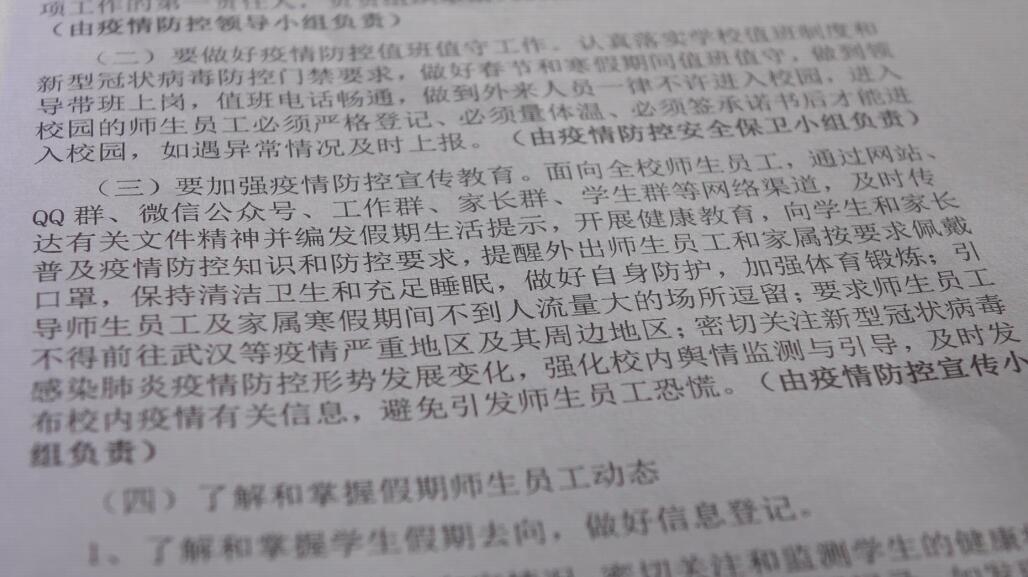 项工作的第一责任人，负责组织
（由疫情防控领导小组负责）
（二）要做好疫情防控值班值守工作。认真落实学校值班制度和
新型冠状病毒防控门禁要求，做好春节和寒假期间值班值守，做到领
导带班上岗，值班电话畅通，做到外来人员一律不许进入校园，进入
校园的师生员工必须严格登记、必须量体温、必须签承诺书后才能进
入校园，如遇异常情况及时上报。（由疫情防控安全保卫小组负责）
（三）要加强疫情防控宣传教育。面向全校师生员工，通过网站、
QQ群、微信公众号、工作群、家长群、学生群等网络渠道，及时传
达有关文件精神并编发假期生活提示，开展健康教育，向学生和家长
普及疫情防控知识和防控要求，提醒外出师生员工和家属按要求佩戴
口罩，保持清洁卫生和充足睡眠，做好自身防护，加强体育锻炼；引
导师生员工及家属寒假期间不到人流量大的场所逗留；要求师生员工
不得前往武汉等疫情严重地区及其周边地区；密切关注新型冠状病毒
感染肺炎疫情防控形势发展变化，强化校内舆情监测与引导，及时发
布校内疫情有关信息，避免引发师生员工恐慌。（由疫情防控宣传小
组负责）
（四）了解和掌握假期师生员工动态
1、了解和掌握学生假期去向，做好信息登记。
密切关注和监测学生的健康